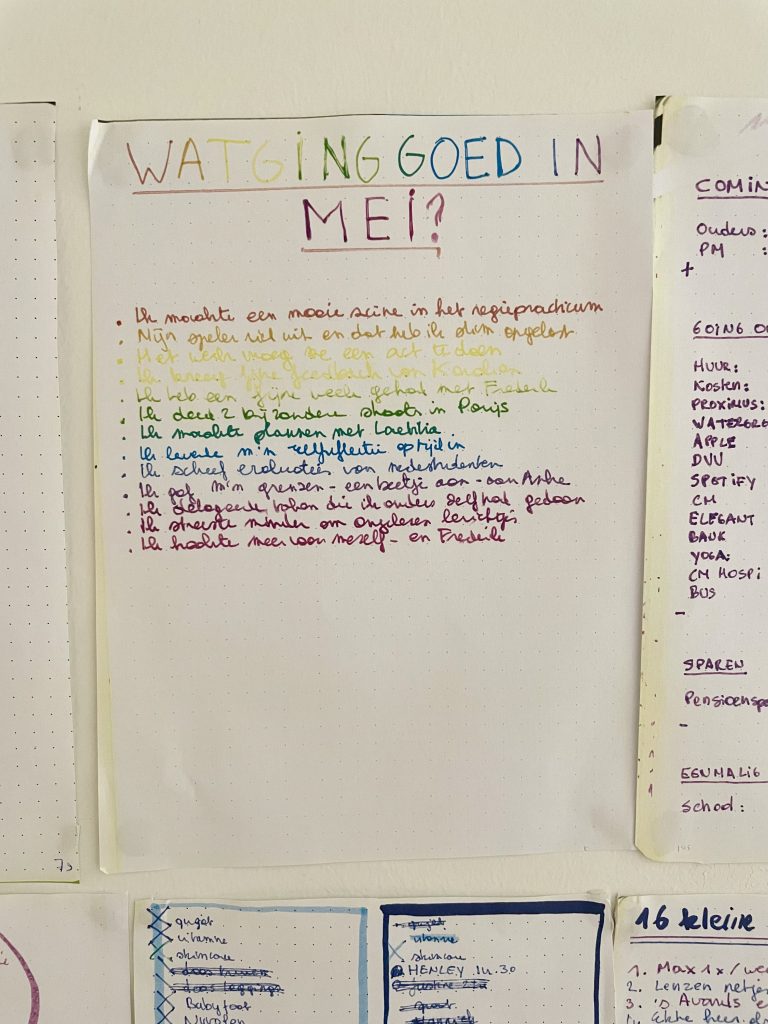 WAT GING GOED IN
MEI?
. Ik maakte een mooie scène in het regiepracticum
. Mijn speler viel uit en dat heb ik slim opgelost
. Het werk vroeg me een act te doen
. Ik kreeg fijne feedback van Karolien
. Ik heb een fijne week gehad met Frederik
. Ik deed 2 bijzondere shoots in Parijs
. Ik maakte plannen met Laetitia
. Ik leverde m'n zelfreflectie op tijd in
. Ik schreef evaluaties van medestudenten
. Ik gaf m'n grenzen - een beetje aan - aan Anke
. Ik delegeerde taken die ik anders zelf had gedaan
. Ik stresste minder om ongelezen berichtjes
. Ik kookte meer voor mezelf - en Frederik
73
COMIN
Ouders:
PM :
+
GOING O
HUUR:
Kosten:
PROXIMUS:
WATERGRO
APPLE
DVV
SPOTIFY
CM
ELEGANT
BANK
YOGA:
CM HOSPI
BUS
-
SPAREN
Pensioenspa
-
EENMALIG
School:
vitamine
skincare
Babyfoot
vitamine
skincare
HENLEY 14.30
16 kleine
1. Max 1x/we
2. Lenzen netje
3. 's Avonds e